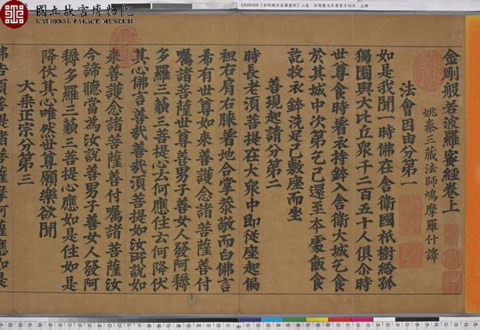 國立故宮博物院
金剛般若波羅蜜經卷上
姚秦三藏法師鳩摩羅什譯
法會因由分第一
如是我聞一時佛在舍衛國祇樹給孤
獨園與大比丘衆千二百五十人俱尒時
世尊食時著衣持鉢入舍衛大城乞食
於其城中次第乞已還至本處飯食
訖收衣鉢洗足已敷座而坐
善現起請分第二
時長老湏菩提在大衆中即從座起偏
袒右肩右膝著地合掌恭敬而白佛言
希有世尊如來善護念諸菩薩善付
囑諸菩薩世尊善男子善女人發阿耨
多羅三藐三菩提心云何應住云何降伏
其心佛言善哉善哉湏菩提如汝所說如
來善護念諸菩薩善付囑諸菩薩汝
今諦聽當為汝說善男子善女人發阿
耨多羅三藐三菩提心應如是住如是
降伏其心唯然世尊願樂欲聞
大乗正宗分第三
佛告湏菩提諸菩薩摩訶薩應如是